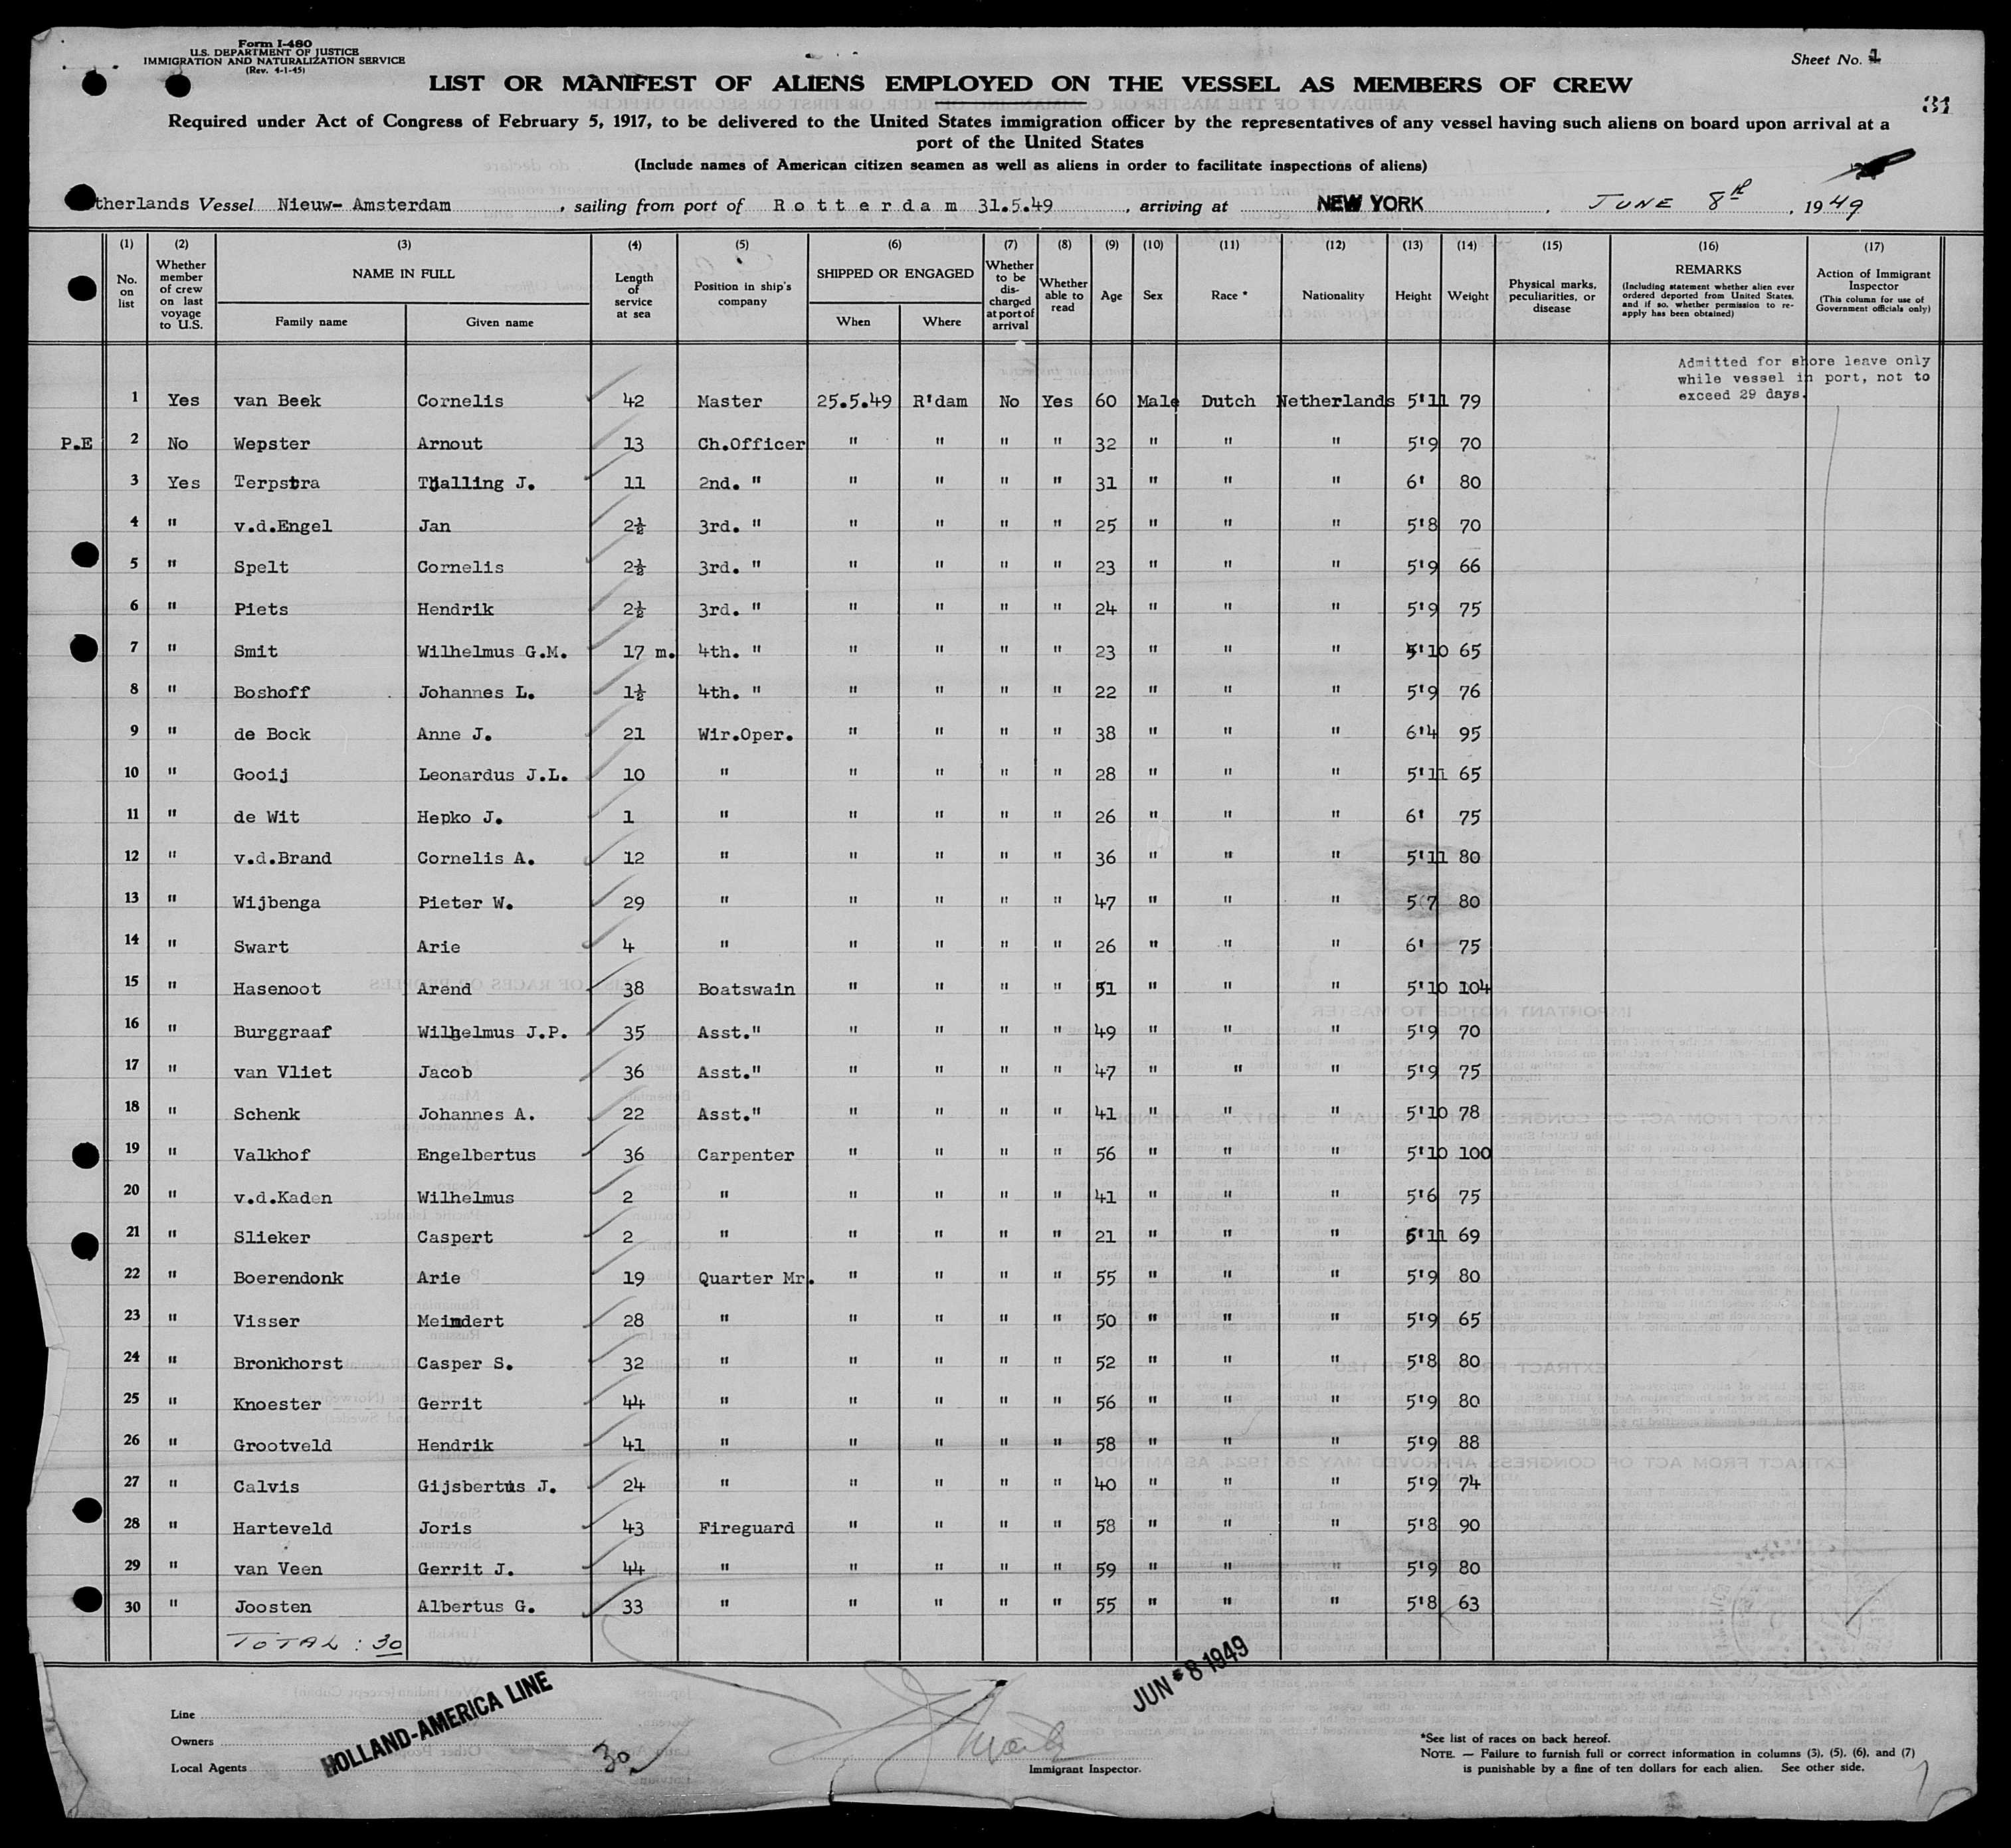 Form I-480
U.S. DEPARTMENT OF JUSTICE
IMMIGRATION AND NATURALIZATION SERVICE
(Rev. 4-1-45)
Sheet No. 1
LIST OR MANIFEST OF ALIENS EMPLOYED ON THE VESSEL AS MEMBERS OF CREW
31
Required under Act of Congress of February 5, 1917, to be delivered to the United States immigration officer by the representatives of any vessel having such aliens on board upon arrival at a
port of the United States
(Include names of American citizen seamen as well as aliens in order to facilitate inspections of aliens)
therlands Vessel Nieuw- Amsterdam, sailing from port of Rotterdam 31.5.49, arriving at NEW YORK, JUNE 8th, 1949
(1) (2) (3) (4) (5) (6) (7) (8) (9) (10) (11) (12) (13) (14) (15) (16) (17)
No. on list | Whether member of crew on last voyage to U.S. | NAME IN FULL Family name Given name | Length of service at sea | Position in ship's company | SHIPPED OR ENGAGED When Where | Whether to be discharged at port of arrival | Whether able to read | Age | Sex | Race * | Nationality | Height | Weight | Physical marks, peculiarities, or disease | REMARKS (Including statement whether alien ever ordered deported from United States, and if so, whether permission to re-apply has been obtained) | Action of Immigrant Inspector (This column for use of Government officials only)
Admitted for shore leave only
while vessel in port, not to
exceed 29 days.
1 Yes van Beek Cornelis 42 Master 25.5.49 R'dam No Yes 60 Male Dutch Netherlands 5'11 79
P.E 2 No Wepster Arnout 13 Ch.Officer " " " " 32 " " " 5'9 70
3 Yes Terpstra Tjalling J. 11 2nd. " " " " " 31 " " " 6' 80
4 " v.d.Engel Jan 2½ 3rd. " " " " " 25 " " " 5'8 70
5 " Spelt Cornelis 2½ 3rd. " " " " " 23 " " " 5'9 66
6 " Piets Hendrik 2½ 3rd. " " " " " 24 " " " 5'9 75
7 " Smit Wilhelmus G.M. 17 m. 4th. " " " " " 23 " " " 5'10 65
8 " Boshoff Johannes L. 1½ 4th. " " " " " 22 " " " 5'9 76
9 " de Bock Anne J. 21 Wir.Oper. " " " " 38 " " " 6'4 95
10 " Gooij Leonardus J.L. 10 " " " " " 28 " " " 5'11 65
11 " de Wit Hepko J. 1 " " " " " 26 " " " 6' 75
12 " v.d.Brand Cornelis A. 12 " " " " " 36 " " " 5'11 80
13 " Wijbenga Pieter W. 29 " " " " " 47 " " " 5'7 80
14 " Swart Arie 4 " " " " " 26 " " " 6' 75
15 " Hasenoot Arend 38 Boatswain " " " " 51 " " " 5'10 104
16 " Burggraaf Wilhelmus J.P. 35 Asst." " " " " 49 " " " 5'9 70
17 " van Vliet Jacob 36 Asst." " " " " 47 " " " 5'9 75
18 " Schenk Johannes A. 22 Asst." " " " " 41 " " " 5'10 78
19 " Valkhof Engelbertus 36 Carpenter " " " " 56 " " " 5'10 100
20 " v.d.Kaden Wilhelmus 2 " " " " " 41 " " " 5'6 75
21 " Slieker Caspert 2 " " " " " 21 " " " 5'11 69
22 " Boerendonk Arie 19 Quarter Mr. " " " " 55 " " " 5'9 80
23 " Visser Meindert 28 " " " " " 50 " " " 5'9 65
24 " Bronkhorst Casper S. 32 " " " " " 52 " " " 5'8 80
25 " Knoester Gerrit 44 " " " " " 56 " " " 5'9 80
26 " Grootveld Hendrik 41 " " " " " 58 " " " 5'9 88
27 " Calvis Gijsbertus J. 24 " " " " " 40 " " " 5'9 74
28 " Harteveld Joris 43 Fireguard " " " " 58 " " " 5'8 90
29 " van Veen Gerrit J. 44 " " " " " 59 " " " 5'9 80
30 " Joosten Albertus G. 33 " " " " " 55 " " " 5'8 63
TOTAL : 30
JUN 8 1949
Line
Owners
Local Agents
HOLLAND-AMERICA LINE
30
Immigrant Inspector.
*See list of races on back hereof.
NOTE. — Failure to furnish full or correct information in columns (3), (5), (6), and (7)
is punishable by a fine of ten dollars for each alien. See other side.